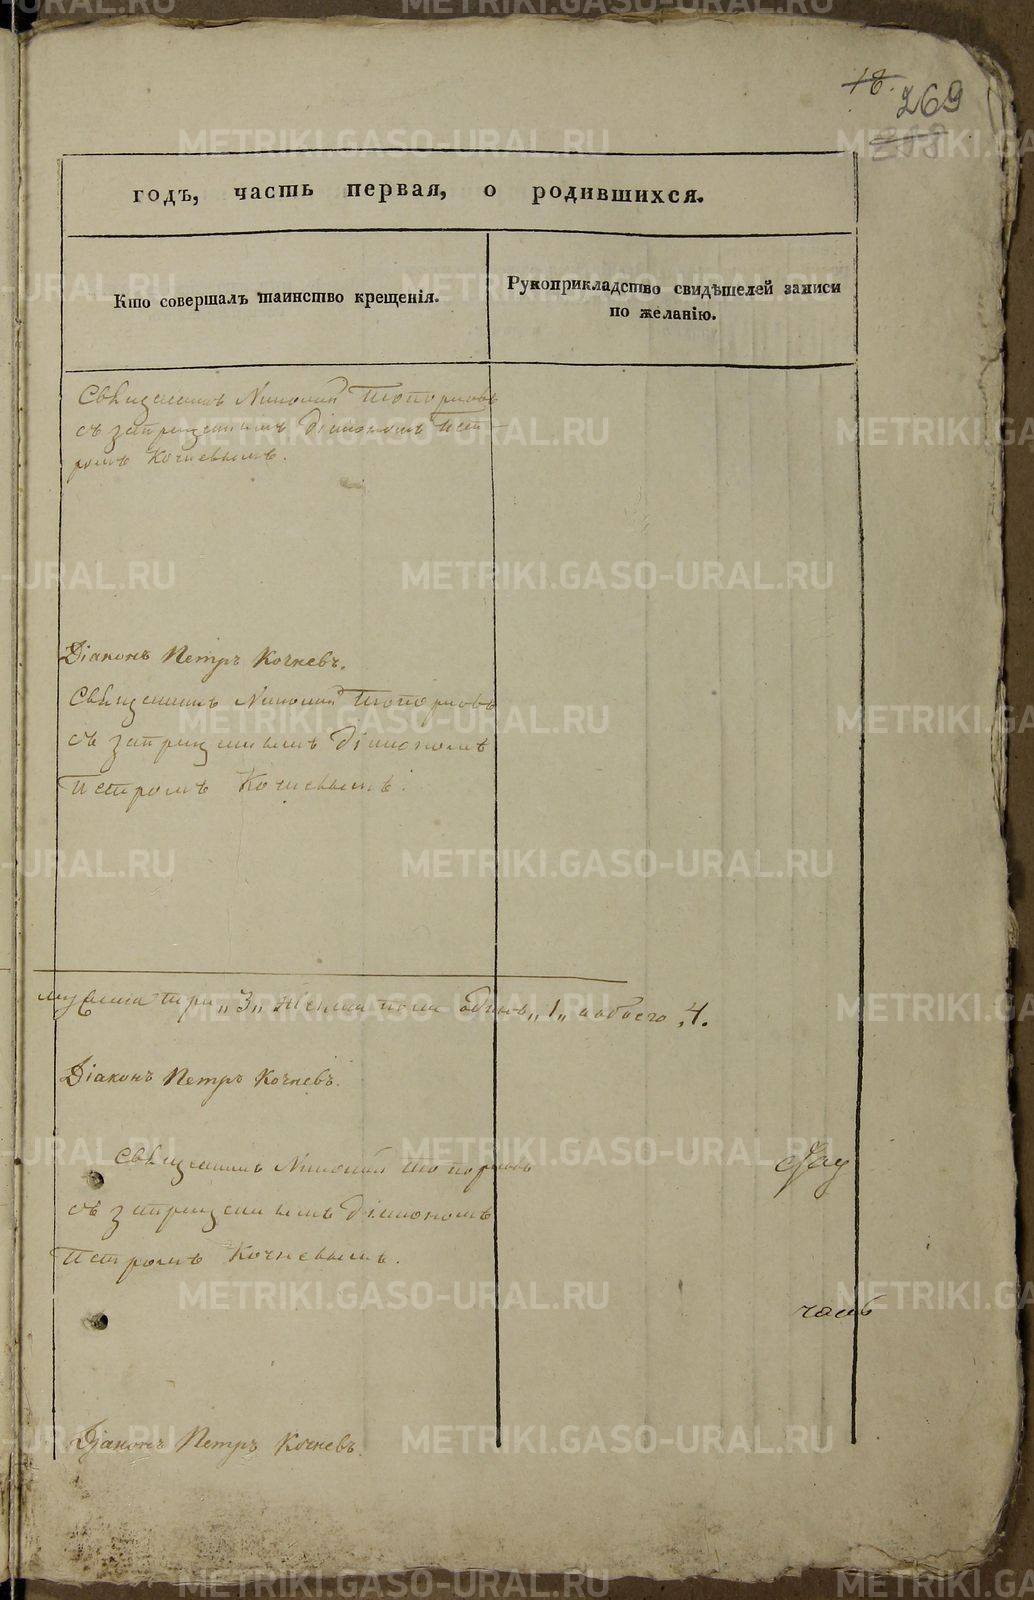 18.
269
годъ, часть первая, о родившихся.
Кто совершалъ таинство крещенія.
Рукоприкладство свидѣтелей записи
по желанію.
Священникъ Николай Топорковъ
съ запрещеннымъ діакономъ Пет-
ромъ Кочневымъ.
Діаконъ Петръ Кочневъ.
Священникъ Николай Топорковъ
съ запрещеннымъ діакономъ
Петромъ Кочневымъ.
три „3„ женска пола „1„ а обоего „4.
Діаконъ Петръ Кочневъ.
Священникъ Николай Топорковъ
съ запрещеннымъ діакономъ
Петромъ Кочневымъ.
часть
Діаконъ Петръ Кочневъ.
METRIKI.GASO-URAL.RU